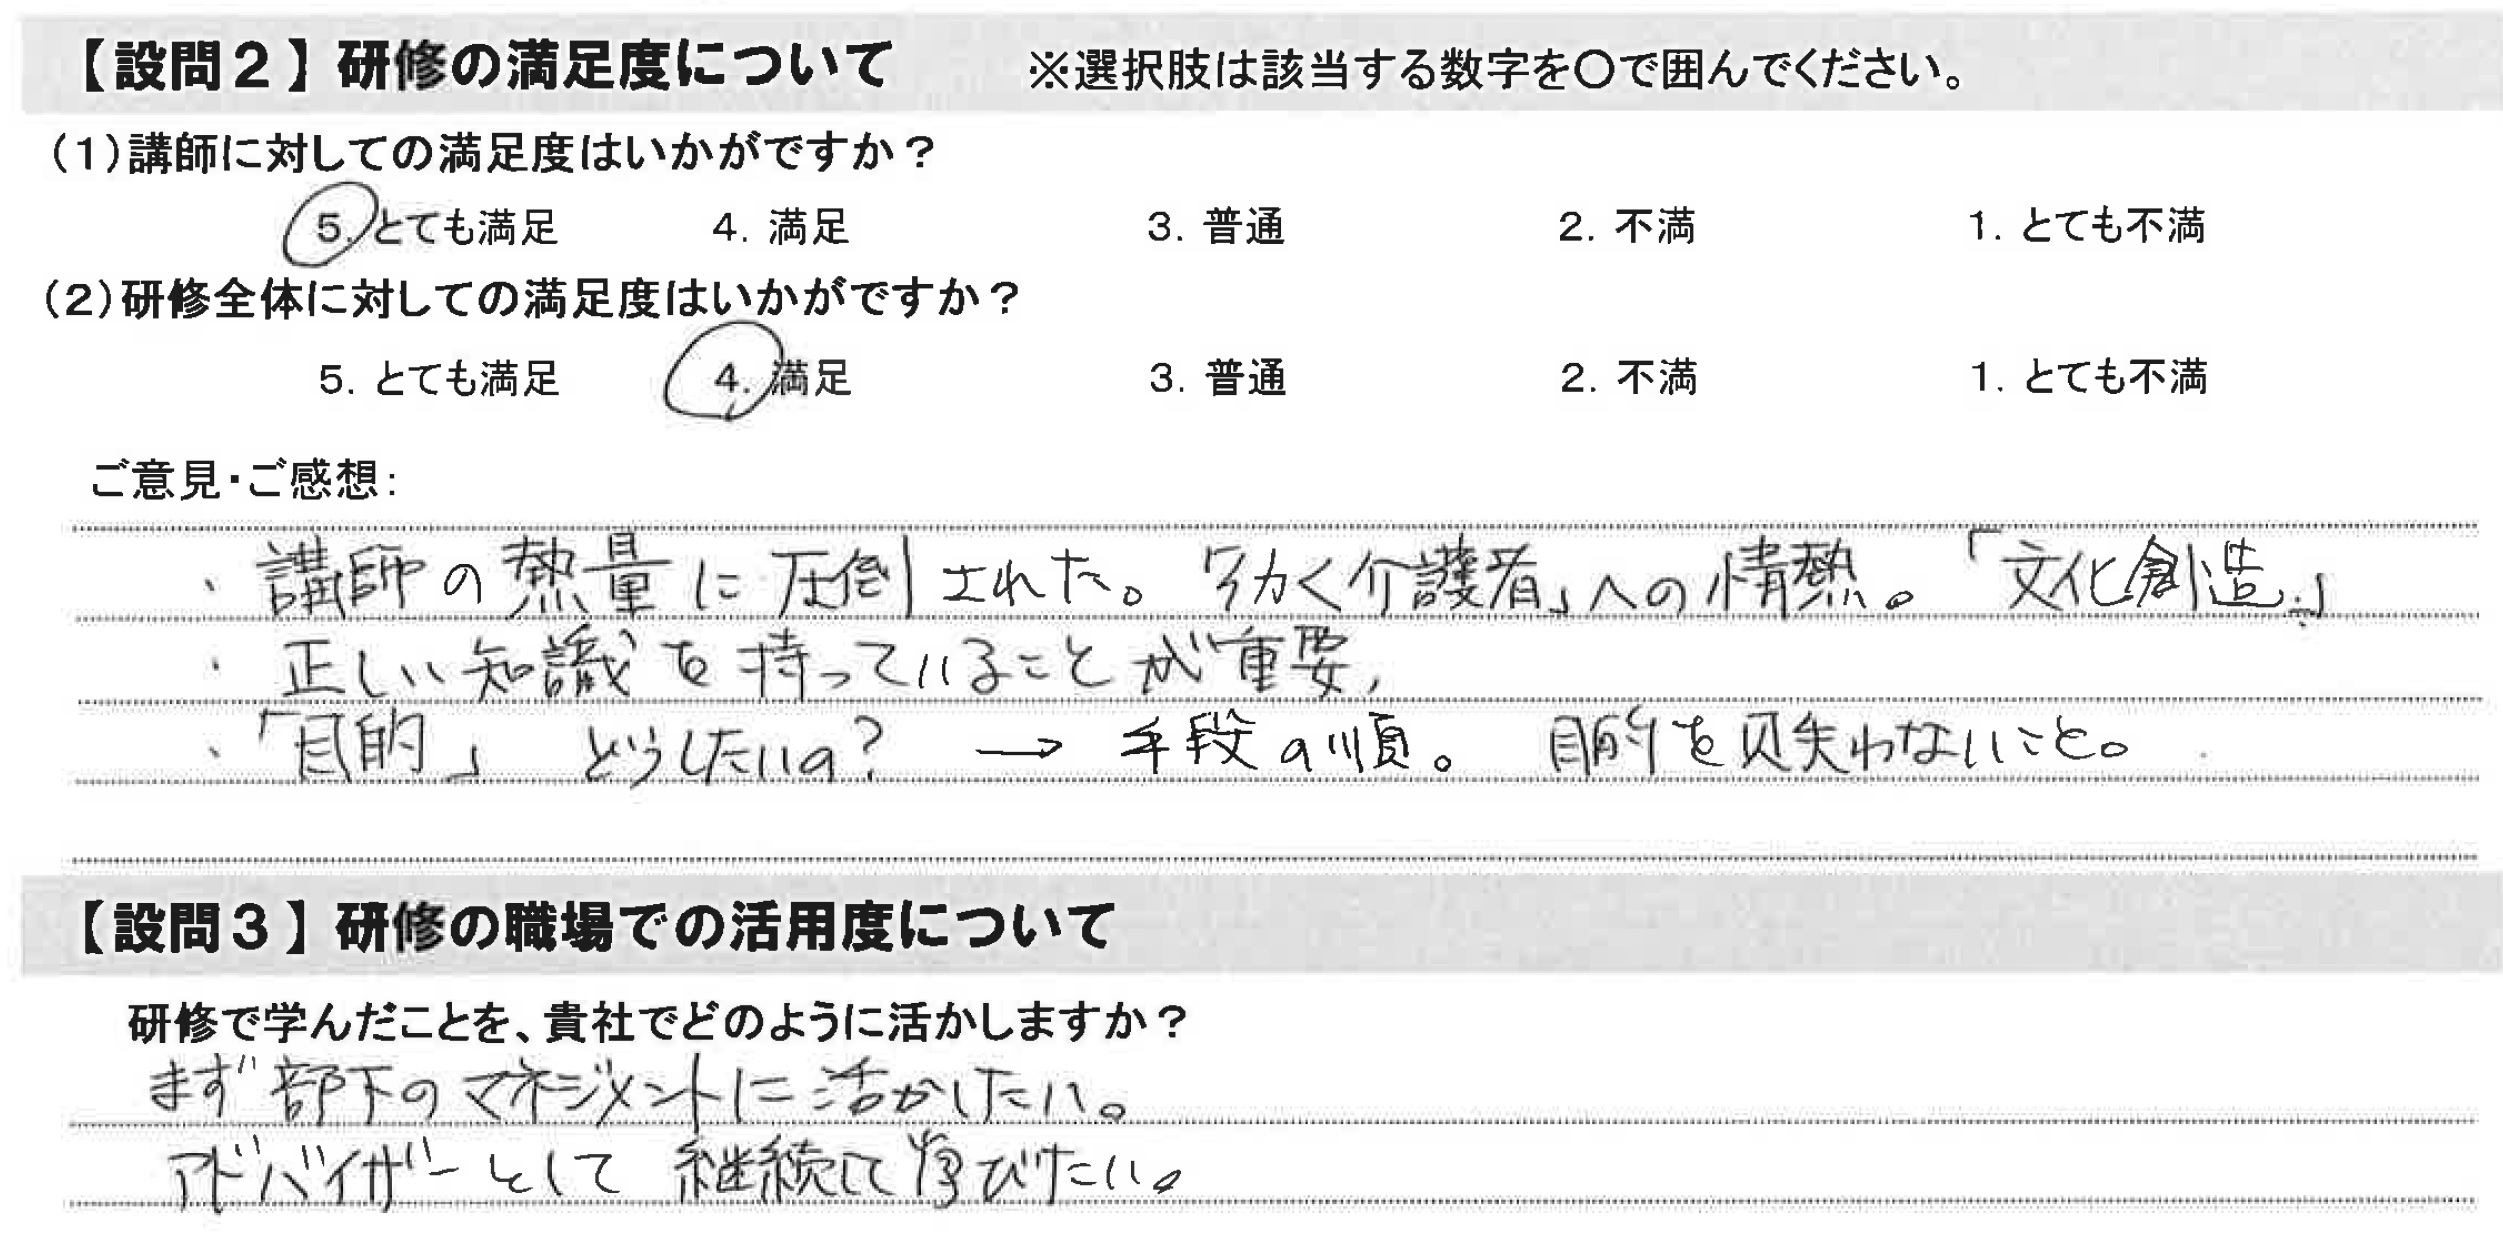 【設問2】研修の満足度について　※選択肢は該当する数字を○で囲んでください。
(1)講師に対しての満足度はいかがですか？
5. とても満足　4. 満足　3. 普通　2. 不満　1. とても不満
(2)研修全体に対しての満足度はいかがですか？
5. とても満足　4. 満足　3. 普通　2. 不満　1. とても不満
ご意見・ご感想：
・講師の熱量に圧倒された。「働く介護者」への情熱。「文化創造」
・正しい知識を持っていることが重要,
・「目的」どうしたいの？ → 手段の順。目的を見失わないこと。
【設問3】研修の職場での活用度について
研修で学んだことを、貴社でどのように活かしますか？
まず部下のマネジメントに活かしたい。
アドバイザーとして継続して学びたい。